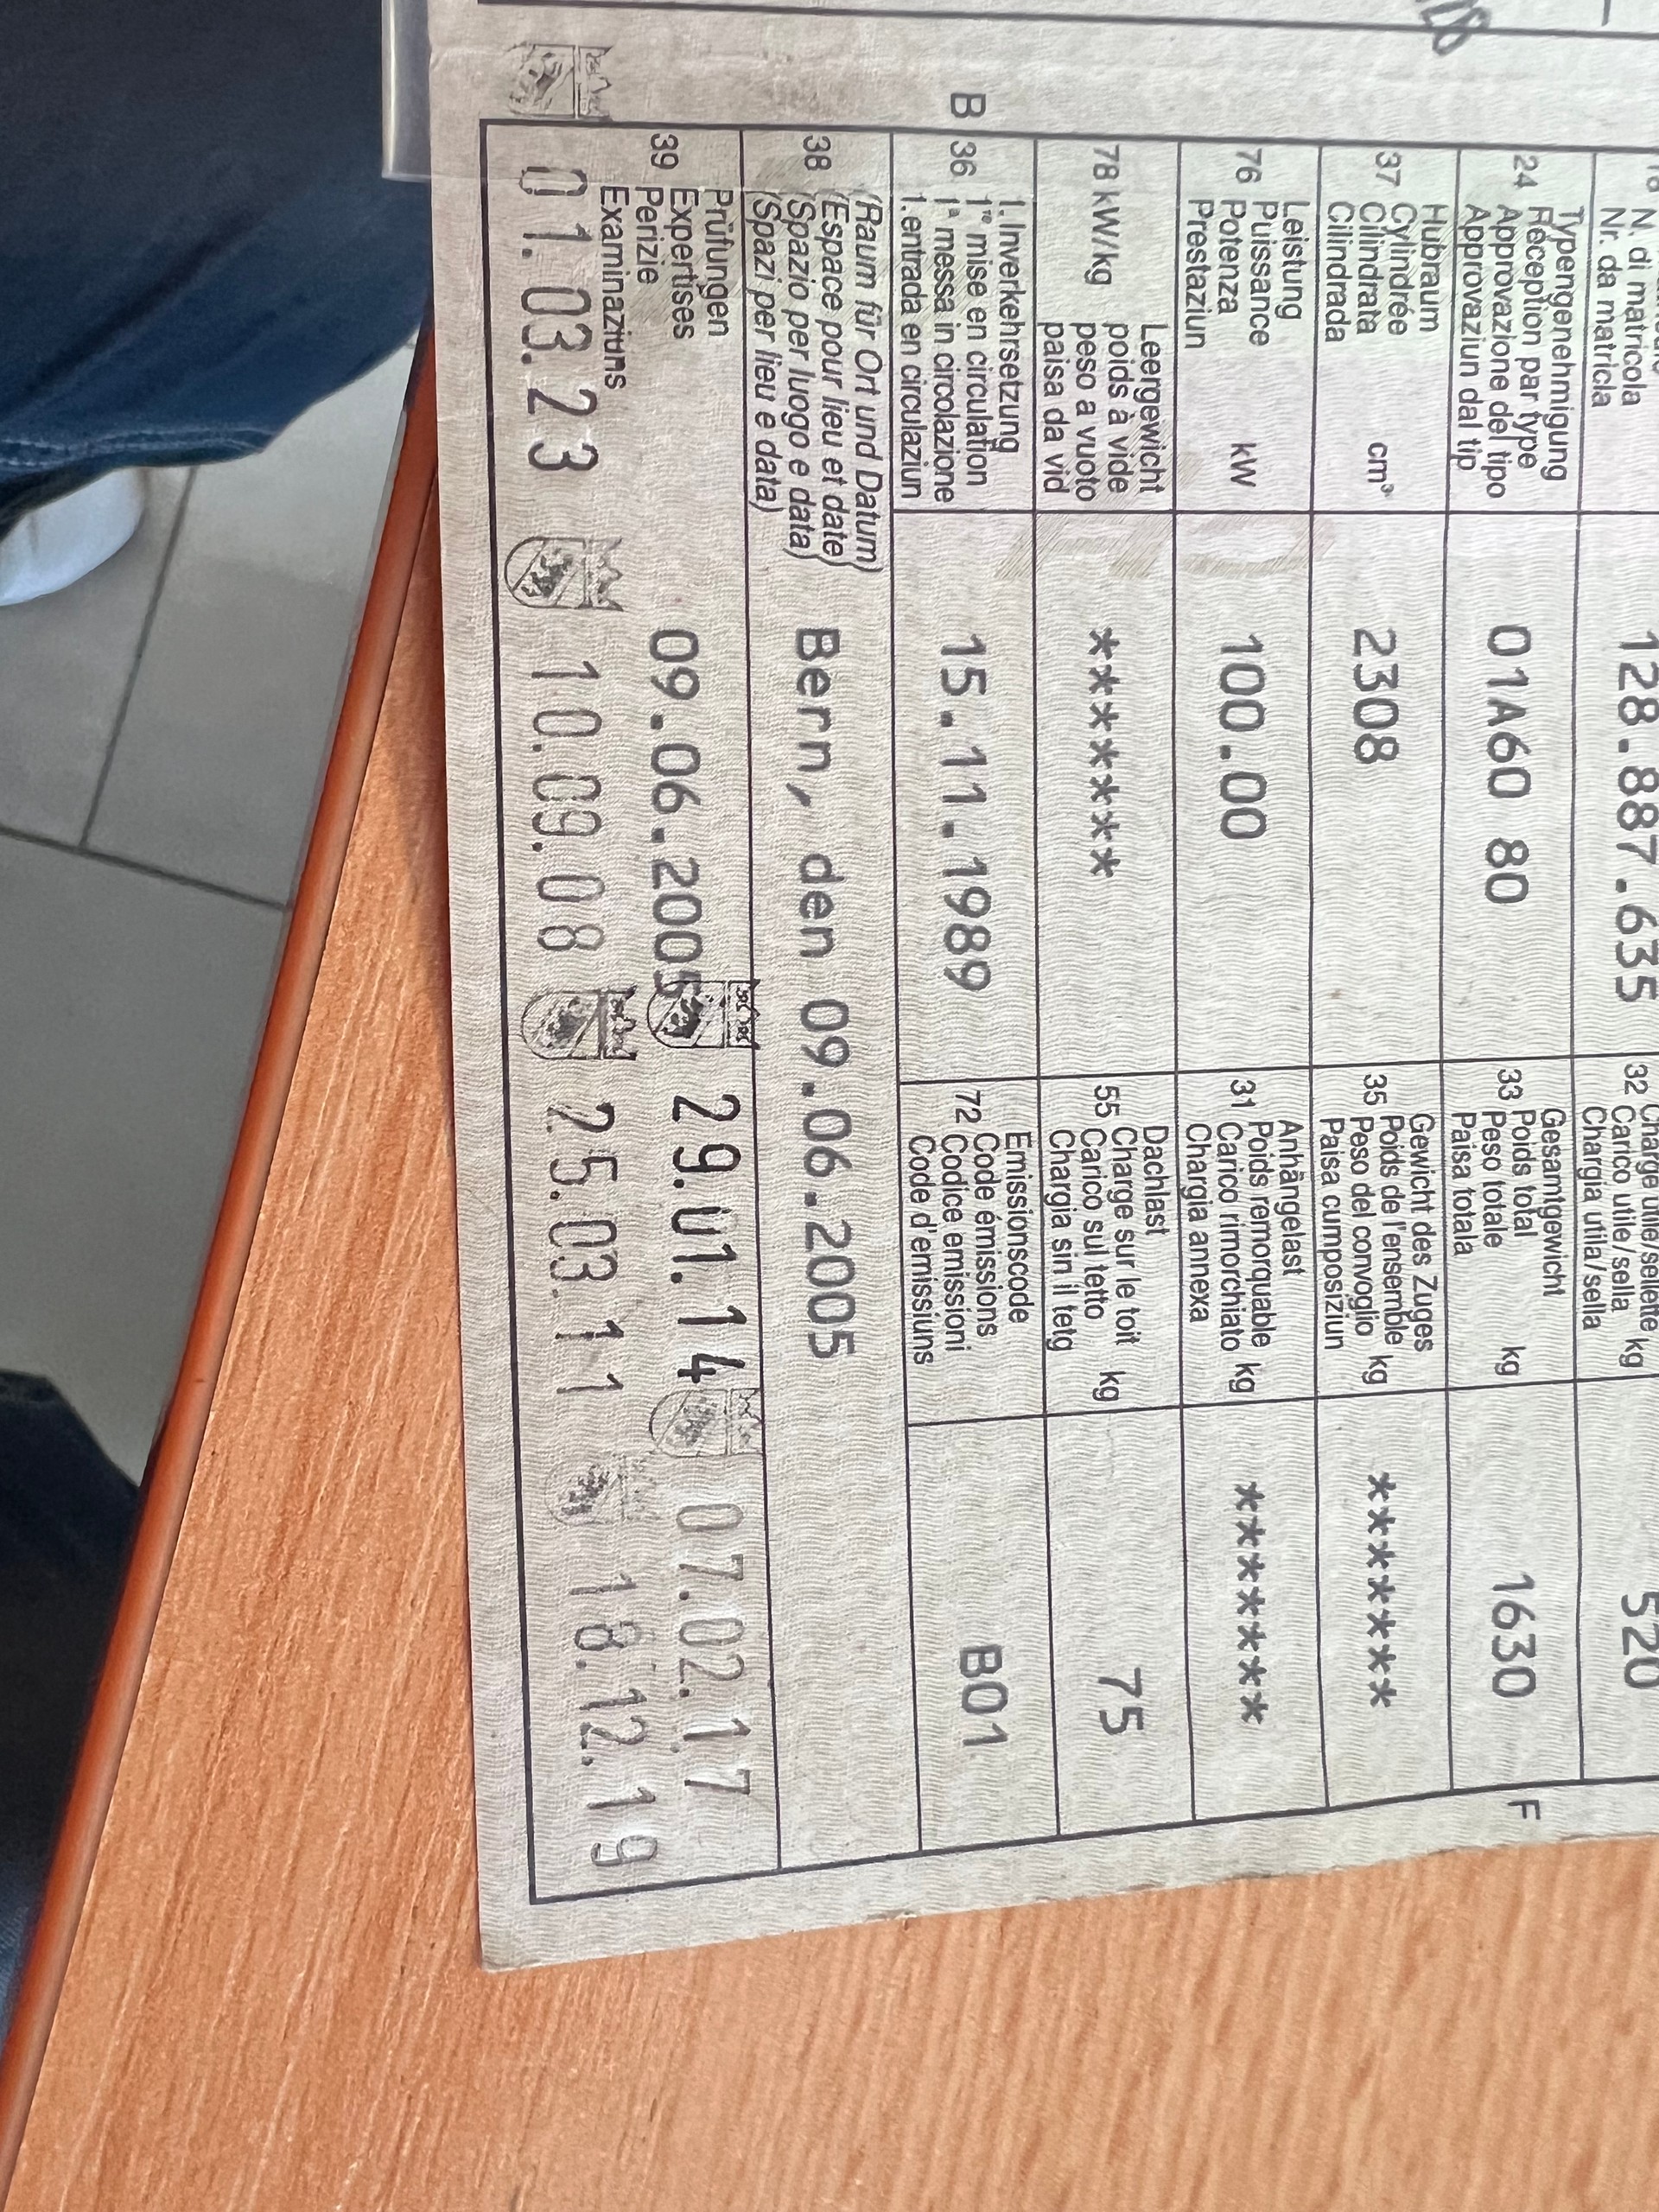 N. di matricola
Nr. da matricla
128.887.635
32 Charge utile/sellette kg
Carico utile/sella
Chargia utila/sella
520
Typengenehmigung
24 Réception par type
Approvazione del tipo
Approvaziun dal tip
01A60 80
Gesamtgewicht
33 Poids total kg
Peso totale
Paisa totala
1630
F
Hubraum
37 Cylindrée
Cilindrata cm³
Cilindrada
2308
Gewicht des Zuges
35 Poids de l'ensemble kg
Peso del convoglio
Paisa cumposiziun
*******
Leistung
76 Puissance
Potenza kW
Prestaziun
100.00
Anhängelast
31 Poids remorquable kg
Carico rimorchiato
Chargia annexa
*******
78 kW/kg
Leergewicht
poids à vide
peso a vuoto
paisa da vid
*******
Dachlast
55 Charge sur le toit kg
Carico sul tetto
Chargia sin il tetg
75
B
1. Inverkehrsetzung
36 1re mise en circulation
1a messa in circolazione
1. entrada en circulaziun
15.11.1989
Emissionscode
72 Code émissions
Codice emissioni
Code d'emissiuns
B01
(Raum für Ort und Datum)
38 (Espace pour lieu et date)
(Spazio per luogo e data)
(Spazi per lieu e data)
Bern, den 09.06.2005
Prüfungen
39 Expertises
Perizie
Examinaziuns
09.06.2005 29.01.14 07.02.17
01.03.23 10.09.08 25.03.11 18.12.19